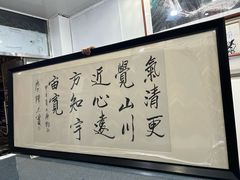 氣清更
覺山川
近心遠
方知宇
宙寬